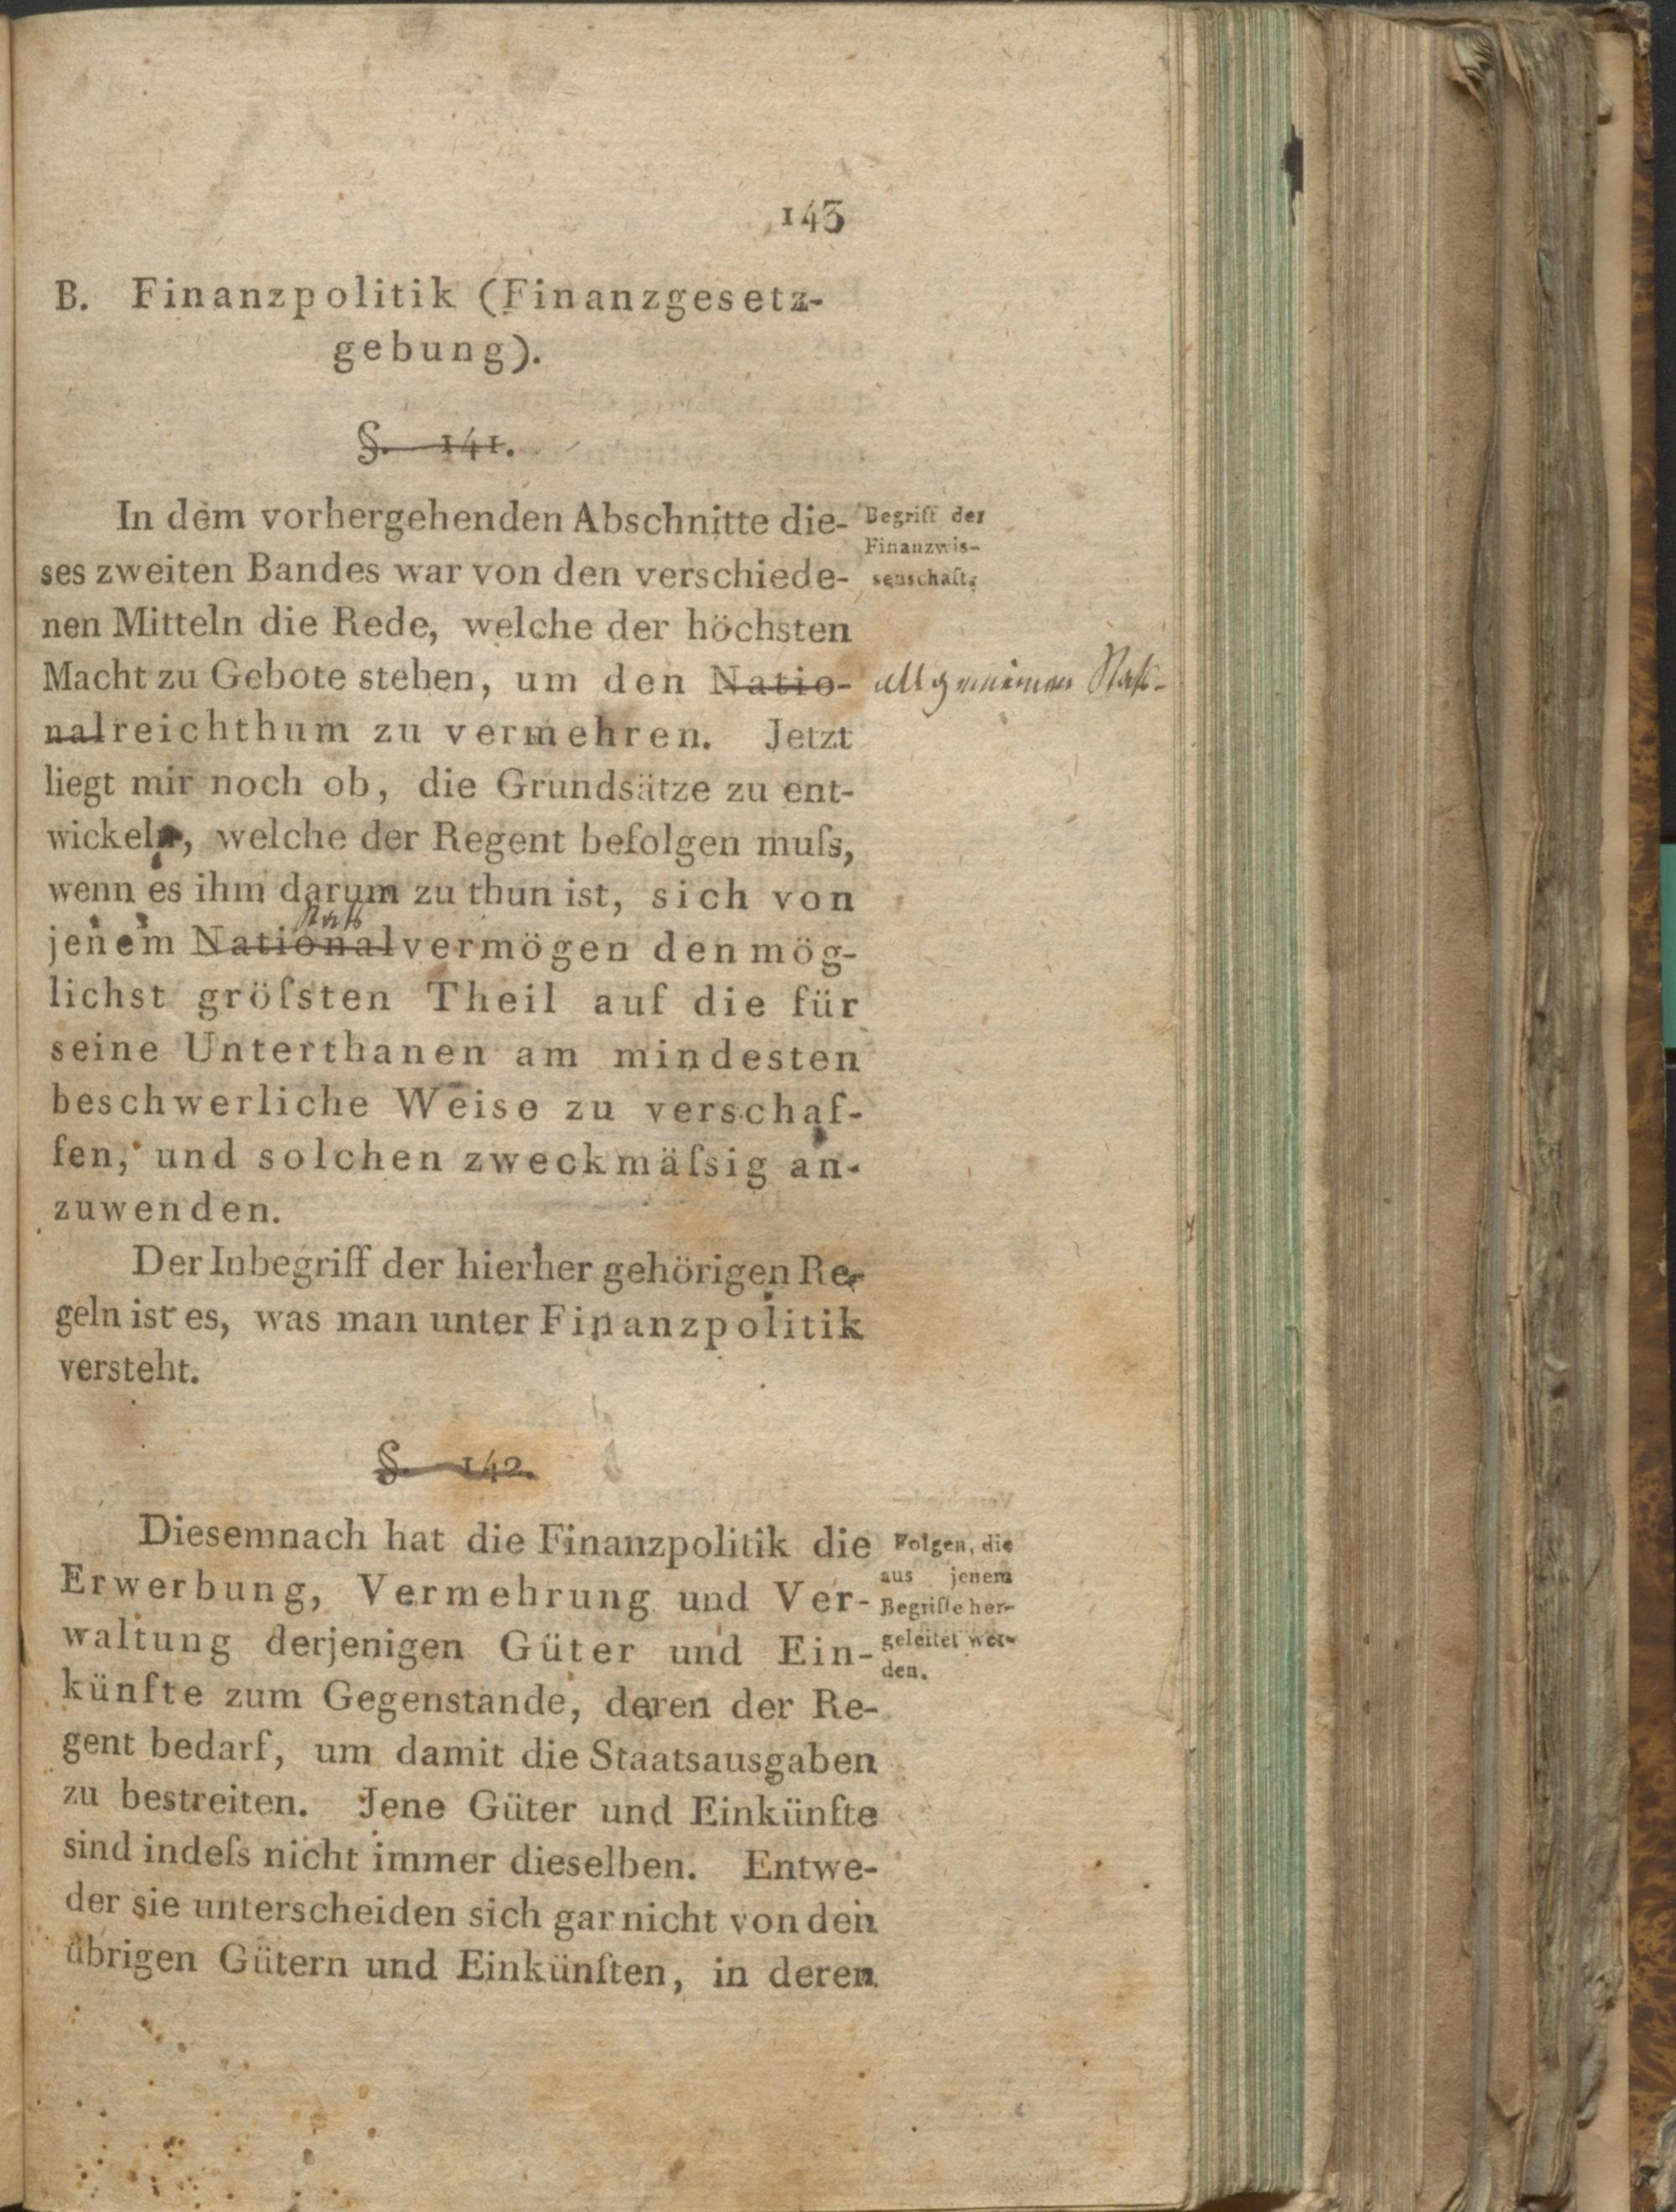 143
B. Finanzpolitik (Finanzgesetz-
gebung).
§. 141.
In dem vorhergehenden Abschnitte die-
ses zweiten Bandes war von den verschiede-
nen Mitteln die Rede, welche der höchsten
Macht zu Gebote stehen, um den Natio-
nalreichthum zu vermehren. Jetzt
liegt mir noch ob, die Grundsätze zu ent-
wickeln, welche der Regent befolgen muſs,
wenn es ihm darum zu thun ist, sich von
jenem Nationalvermögen den mög-
lichst gröſsten Theil auf die für
seine Unterthanen am mindesten
beschwerliche Weise zu verschaf-
fen, und solchen zweckmäſsig an-
zuwenden.
Der Inbegriff der hierher gehörigen Re-
geln ist es, was man unter Finanzpolitik
versteht.
Begriff der
Finanzwis-
senschaft.
allgemeinen Staats-
§. 142.
Diesemnach hat die Finanzpolitik die
Erwerbung, Vermehrung und Ver-
waltung derjenigen Güter und Ein-
künfte zum Gegenstande, deren der Re-
gent bedarf, um damit die Staatsausgaben
zu bestreiten. Jene Güter und Einkünfte
sind indeſs nicht immer dieselben. Entwe-
der sie unterscheiden sich gar nicht von den
übrigen Gütern und Einkünften, in deren
Folgen, die
aus jenem
Begriffe her-
geleitet wer-
den.